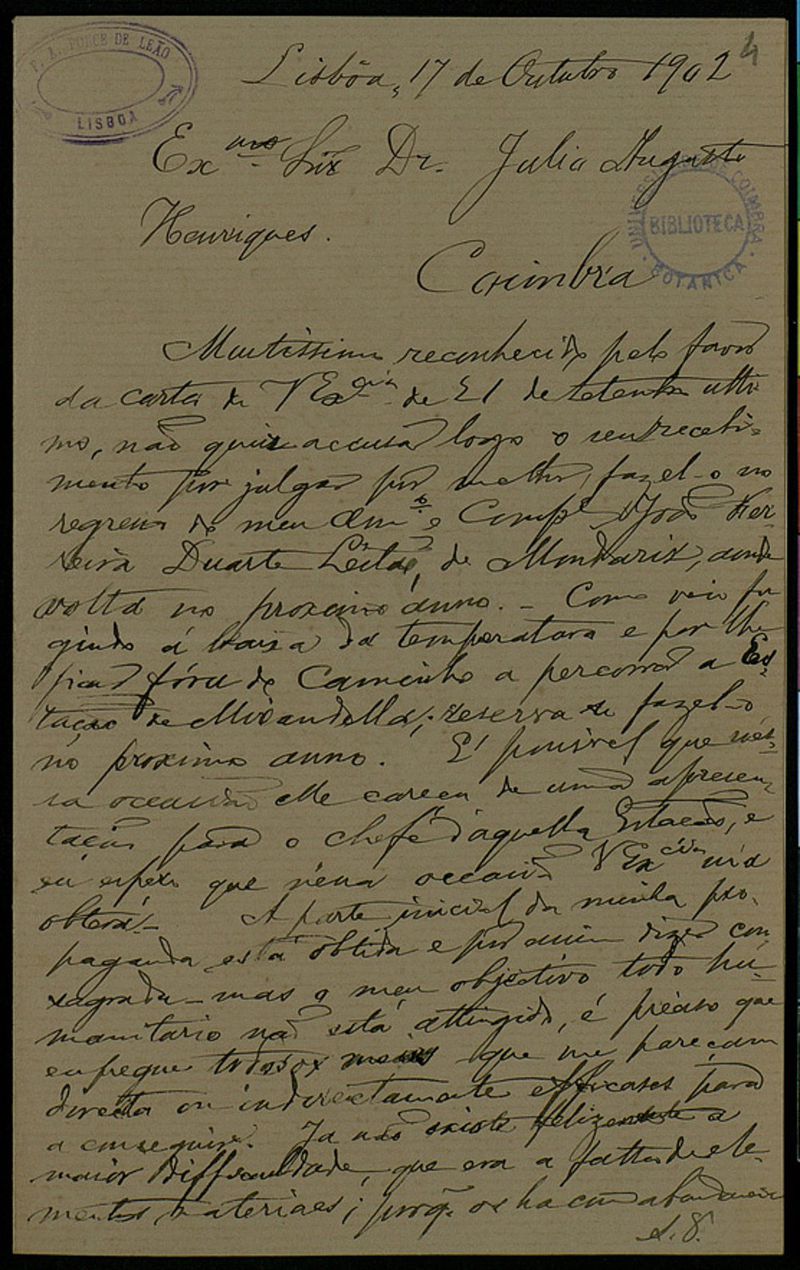 F. A. PONCE DE LEÃO
LISBOA
4
Lisbôa, 17 de Outubro 1902
Ex.mo Snr. Dr. Julio Augusto
Henriques.
UNIVERSIDADE DE COIMBRA
BIBLIOTECA
BOTANICA
Coimbra
Muitissimo reconhecido pelo favor
da carta de V Ex.cia de 21 de Setembro ulti
mo, não quiz accusar logo o seu recebi-
mento por julgar por melhor, fazel-o no
regresso do meu Am.o e Comp.e João Fer-
reira Duarte Leitão, de Mondariz, aonde
volta no proximo anno. - Como veio fu
gindo á baixa da temperatura e por lhe
ficar fóra de Caminho a percorrer a Es-
tação de Mirandella; reserva-se fazel-o
no proximo anno. É possivel que nes-
sa occasião elle careça de uma apresen-
tação para o chefe d'aquella Estação, e
eu espero que n'essa occasião V Ex.cia m'a
obterá. - A parte inicial da minha pro-
paganda está obtida e por assim dizer con
sagrada - mas o meu objectivo todo hu-
manitario não está attingido, é preciso que
empregue todos os meios que me pareçam
directa ou indirectamente efficases para
a conseguir. Ja não existe felizmente a
maior difficuldade, que era a falta de ele-
mentos materiaes; porq. os ha com abundancia